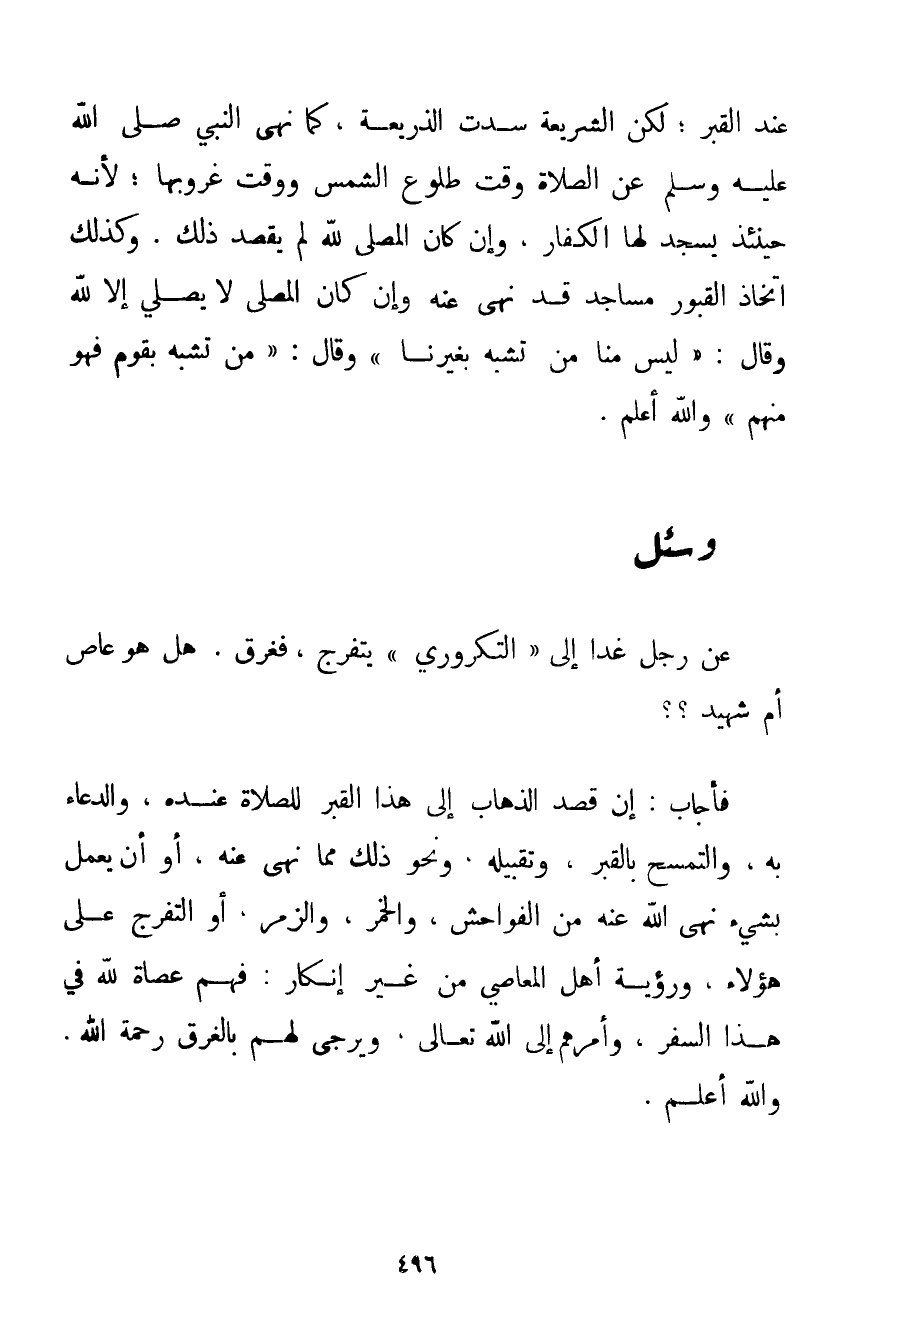 عند القبر ؛ لكن الشريعة سدت الذريعة ، كما نهى النبي صلى الله
عليه وسلم عن الصلاة وقت طلوع الشمس ووقت غروبها ؛ لأنه
حينئذ يسجد لها الكفار ، وإن كان المصلى لله لم يقصد ذلك . وكذلك
اتخاذ القبور مساجد قد نهى عنه وإن كان المصلى لا يصلي إلا لله
وقال : « ليس منا من تشبه بغيرنا » وقال : « من تشبه بقوم فهو
منهم » والله أعلم .
وسئل
عن رجل غدا إلى « التكروري » يتفرج ، فغرق . هل هو عاص
أم شهيد ؟؟
فأجاب : إن قصد الذهاب إلى هذا القبر للصلاة عنده ، والدعاء
به ، والتمسح بالقبر ، وتقبيله . ونحو ذلك مما نهى عنه ، أو أن يعمل
بشيء نهى الله عنه من الفواحش ، والخمر ، والزمر . أو التفرج على
هؤلاء ، ورؤية أهل المعاصي من غير إنكار : فهم عصاة لله في
هذا السفر ، وأمرهم إلى الله تعالى . ويرجى لهم بالغرق رحمة الله .
والله أعلم .
٤٩٦